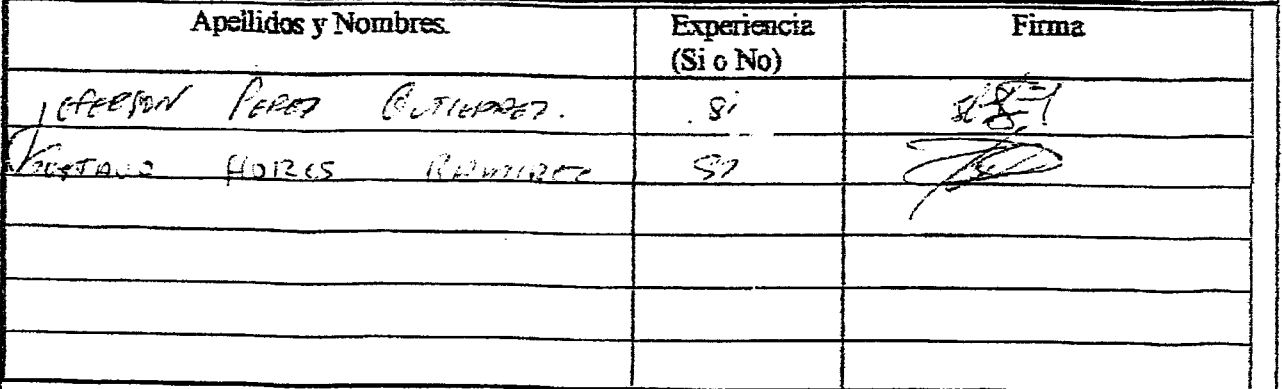 Apellidos y Nombres. Experiencia (Si o No) Firma
JEFERSON PEREZ GUTIERREZ. Si
GUSTAVO RAMIREZ SI